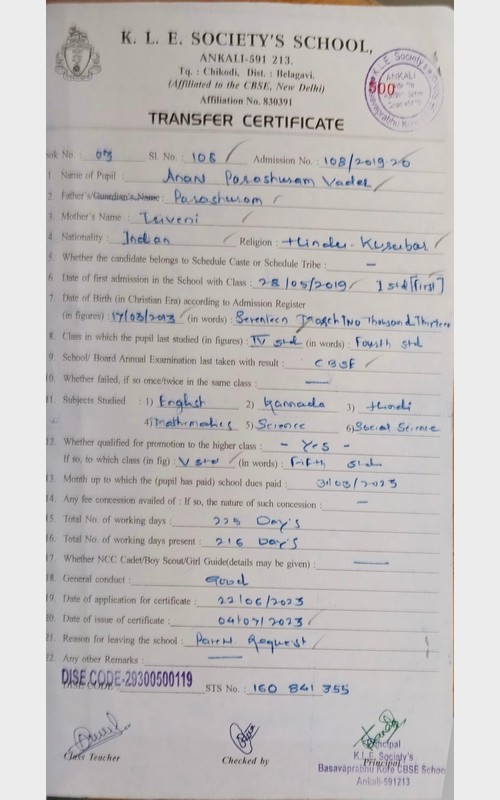 K. L. E. SOCIETY'S SCHOOL,
ANKALI-591 213.
Tq. : Chikodi, Dist. : Belagavi.
(Affiliated to the CBSE, New Delhi)
Affiliation No. 830391
K.L.E. Society's
ANKALI
500
TRANSFER CERTIFICATE
ook No. : Sl. No. : 108 Admission No. : 108/2019-20
1. Name of Pupil : Parashuram Vader
2. Father's/Guardian's Name : Parashuram
3. Mother's Name : Triveni
4. Nationality : Indian Religion : Hindu-Kurubar
5. Whether the candidate belongs to Schedule Caste or Schedule Tribe : –
6. Date of first admission in the School with Class : 28/05/2019 I std [first]
7. Date of Birth (in Christian Era) according to Admission Register
(in figures) : 17/03/2013 (in words) : Seventeen March Two Thousand Thirteen
8. Class in which the pupil last studied (in figures) : IV std (in words) : Fourth std
9. School/ Board Annual Examination last taken with result : CBSE
10. Whether failed, if so once/twice in the same class : —
11. Subjects Studied : 1) English 2) Kannada 3) Hindi
4) Mathematics 5) Science 6) Social Science
12. Whether qualified for promotion to the higher class : - Yes -
If so, to which class (in fig) V std (in words) : Fifth std
13. Month up to which the (pupil has paid) school dues paid : 31/03/2023
14. Any fee concession availed of : If so, the nature of such concession : –
15. Total No. of working days : 225 Day's
16. Total No. of working days present : 216 Day's
17. Whether NCC Cadet/Boy Scout/Girl Guide(details may be given) : —
18. General conduct : Good
19. Date of application for certificate : 22/06/2023
20. Date of issue of certificate : 04/07/2023
21. Reason for leaving the school : Request
22. Any other Remarks : —
DISE CODE-29300500119
STS No. : 160 841 355
Class Teacher Checked by Principal
Principal
K.L.E. Society's
Basavaprabhu Kore CBSE School
Ankali-591213